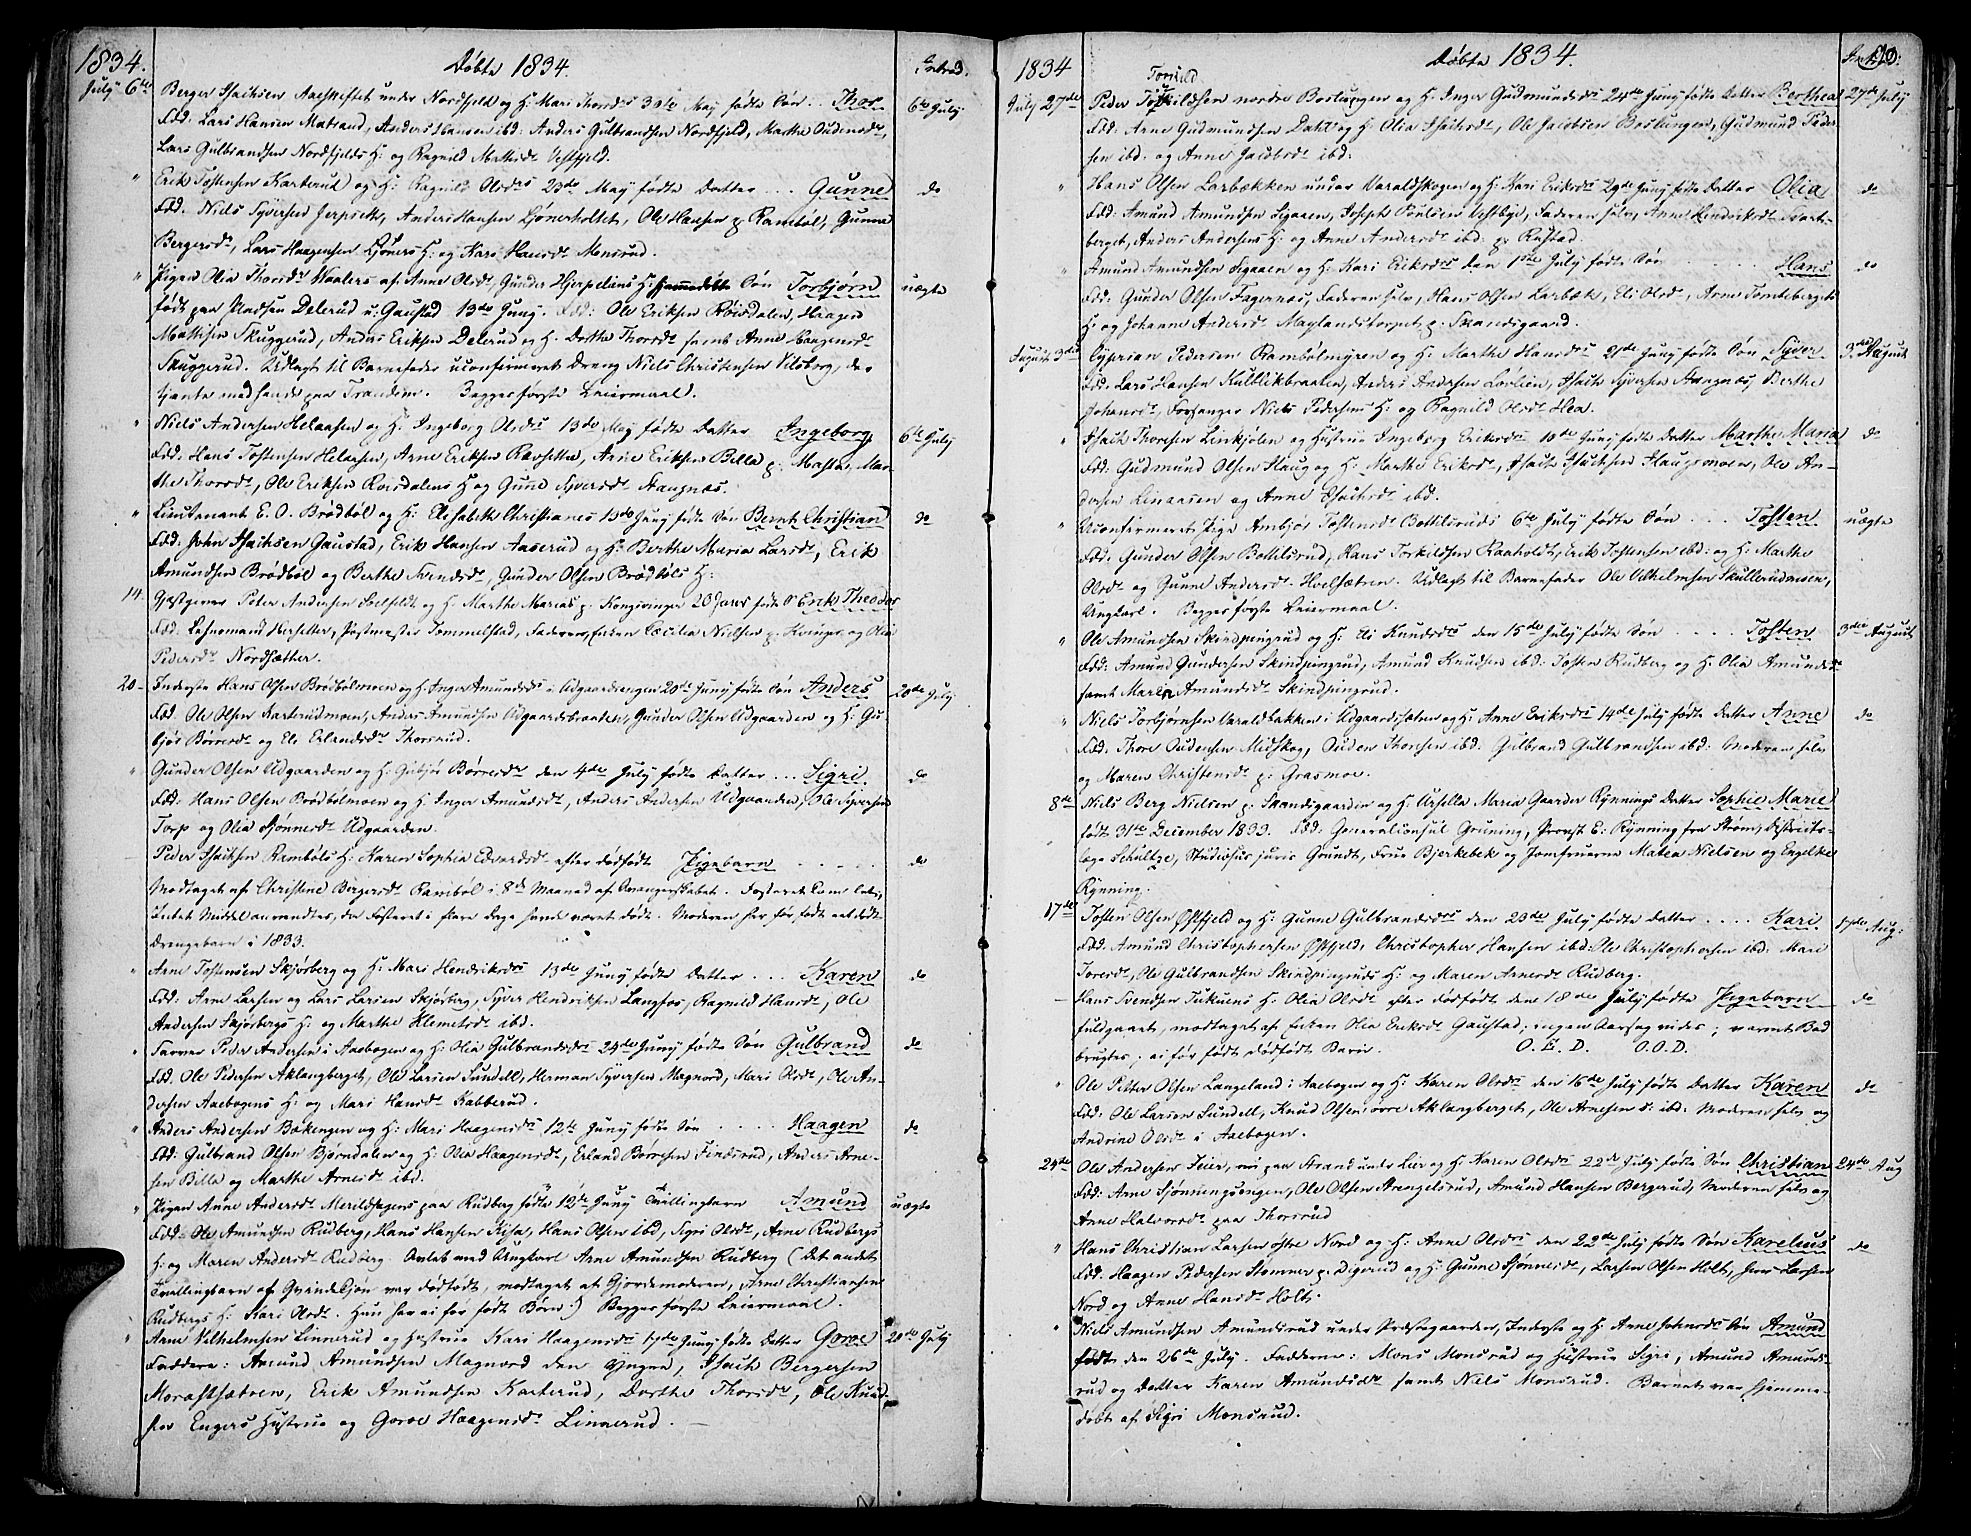 1834.
Døbte 1834.
Introd.
July 6te
Berger Isachsen Aaeskiftet under Nordfjeld og H: Mari Thorsdrs 30te May fødte Søn .. Thor 6te July
Fdd. Lars Hansen Matrand, Anders Hansen ibd: Anders Gulbrandsen Nordfjeld, Marthe Oudensdr,
Lars Gulbrandsen Nordfjelds H: og Ragnild Mathisdr Vestfjeld.
" Erik Tostensen Karterud og H: Ragnild Olsdrs 23de May fødte Datter ... Gunne do
Fdd. Niels Syversen Jerpset, Anders Hansen Lønerholtet, Ole Hansen p: Rambøl, Gunne
Bergersdr, Lars Haagensen H: og Kari Hansdr Monsrud.
" Pigen Olia Thorsdr Waalers af: Anne Olsdr, Gunder Hjerpeliens H: Søn Torbjørn uægte
født paa Pladsen Delerud u: Gaustad 13de Juny. Fdd: Ole Eriksen Røisdalen, Haagen
Mathisen Skuggerud, Anders Eriksen Delerud og H: Dorthe Thorsdr samt Anne Haagensdr
Skuggerud. Udlagt til Barnefader uconfirmeret Dreng Niels Christensen Vilsborg, der
tjente med hende paa Trandem. Begges første Leiermaal.
" Niels Andersen Helaasen og H: Ingeborg Olsdrs 13de May fødte Datter Ingeborg 6te July
Fdd: Hans Tostensen Helaasen, Arne Eriksen Ravsetta, Arne Eriksen Billa p: Masta, Mar-
the Thorsdr, Ole Eriksen Roisdalens H og Gune Syversdr Haugnæs.
" Lieutenant E. O. Brødbøl og H: Elisabeth Christianes 13de Juny fødte Søn Bernt Christian do
Fdd: John Isachsen Gaustad, Erik Hansen Aaserud og H: Berthe Maria Larsdr, Erik
Amundsen Brødbøl og Berthe Svendsdr, Gunder Olsen Brødbøls H:
14. Gjæstgiver Peter Andersen Solfeldt og H: Marthe Marias p: Kongsvinger fødte S Erik Theodor
Fdd: Lehnsmand Herseter, Postmester Tommelstad, Faderen, Enken Cæcilia Nielsen p: Kvinger og Olia
Pedersdr Nordsæther.
20- Inderste Hans Olsen Brødbølmoen og H: Inger Amundsdrs i Udgaardsengen 20de Juny fødte Søn Anders 20de July
Fdd. Ole Olsen Karterudmoen, Anders Amundsen Udgaardsbraaten, Gunder Olsen Udgaarden og H: Gu-
bjør Børresdr og Eli Erlandsdr Thorsrud.
" Gunder Olsen Udgaarden og H: Gubjør Børresdr den 4de July fødte Datter ... Sigri do
Fdd: Hans Olsen Brødbølmoen og H: Inger Amundsdr, Anders Andersen Udgaarden, Ole Syversen
Torp og Olia Sjønnesdr Udgaarden.
Peder Isachsen Rambøls H: Karen Sophia Edvardsdr efter dødfødt Pigebarn ..... do
Modtaget af Christine Birgersdr Rambøl i 8de Maaned af Svangerskabet. Fosteret kom
Intet Middel anvendtes, da Fosteret i flere Dage havde været dødt. Moderen har før født eet dødt
Drengebarn i 1833.
" Arne Tostensen Skjørberg og H: Mari Hendriksdrs 13de Juny fødte Datter ... Karen do
Fdd: Arne Larsen og Lars Larsen Skjørberg, Syver Hendriksen Langfos, Ragnild Hansdr, Ole
Andersen Skjørbergs H: og Marthe Klemetsdr ibd.
" Farver Peder Andersen i Aabogen og H: Olia Gulbrandsdrs 24de Juny fødte Søn Gulbrand do
Fdd: Ole Pedersen Aklangberget, Ole Larsen Sundell, Herman Syversen Magnord, Mari Olsdr, Ole An-
dersen Aabogens H: og Mari Hansdr Kabberud.
" Anders Andersen Bækengen og H: Mari Haagensdrs 12te Juny fødte Søn ..... Haagen do
Fdd: Gulbrand Olsen Bjørndalen og H: Olia Haagensdr, Erland Børresen Findsrud, Anders Arne-
sen Billa og Marthe Arnesdr ibd.
" Pigen Anne Andersdr Merildhagens paa Rudberg fødte 12te Juny Tvillingbarn Amund uægte
Fdd: Ole Amundsen Rudberg, Hans Hansen Kysa, Hans Olsen ibd, Sigri Olsdr, Arne Rudbergs
H: og Maren Andersdr Rudberg. Avlet med Ungkarl Arne Amundsen Rudberg (Det andet
Tvillingbarn af Qvindekjøn var dødfødt, modtaget af Gjordemoderen, Arne Christiansen
Rudbergs H: Kari Olsdr. Hun har ei før født Børn:) Begges første Leiermaal.
" Arne Vilhelmsen Linnerud og Hustrue Kari Haagensdrs 17de Juny fødte Datter Goroe 20de July
Faddere: Amund Amundsen Magnord den yngre, Isach Bergersen
Morastsætren, Erik Amundsen Karterud, Dorthe Thorsdr, Ole Knud-
sen Engers Hustrue og Goroe Haagensdr Linnerud. —
1834
Døbte 1834.
July 27de
Peder Torkildsen nordre Boslungen og H: Inger Gudmundsdrs 24de Juny fødte Datter Berthea 27de July
Fdd: Arne Gudmundsen og H: Olia Isachsdr, Ole Jacobsen Boslungen, Gudmund Peder-
sen ibd: og Anne Jacobsdr ibd:
" Hans Olsen Larbækken under Varaldskogen og H: Kari Eriksdrs 29de Juny fødte Datter Olia do
Fdd: Amund Amundsen Sigaaen, Joseph Poulsen Vestbye, Faderen selv, Anne Hendriksdr Vart-
berget, Anders Andersens H: og Anne Andersdr ibd: p: Rustad.
" Amund Amundsen Sigaaen og H: Kari Eriksdrs den 1ste July fødte Søn ...... Hans do
Fdd: Gunder Olsen Fagernæs, Faderen selv, Hans Olsen Larbæk, Eli Olsdr, Arne Tomteberget
H: og Johanne Andersdr Maylandstorpet p: Skandsgaard.
August 3die Cyprian Pedersen Rambølmyren og H: Marthe Hansdrs 21de Juny fødte Søn Syver 3die August
Fdd: Lars Hansen Kulblikbraaten, Anders Andersen Løvlien, Isach Syversen Haugnæs, Berthe
Johansdr, Forsanger Niels Pedersens H: og Ragnild Olsdr Hea.
" Isach Thoresen Linkjølen og Hustrue Ingeborg Eriksdrs 10de Juny fødte Datter Marthe Maria do
Fdd: Gudmund Olsen Haug og H: Marthe Eriksdr, Isach Isachsen Haugsmoen, Ole An-
dersen Linaasen og Anne Isachsdr ibd.
" Uconfirmeret Pige Ambjør Tostensdr Bottilsruds 6te July fødte Søn .... Tosten uægte
Fdd: Gunder Olsen Bottilsrud, Hans Torkildsen Raaholdt, Erik Tostensen ibd: og H: Marthe
Olsdr og Gunne Andersdr Hvelsætren. Udlagt til Barnefader Ole Vilhelmsen Skullerudmoen,
Ungkarl. Begges første Leiermaal.
" Ole Amundsen Skindpungrud og H: Eli Knudsdrs den 15de July fødte Søn .... Tosten 3die August
Fdd: Amund Gundersen Skindpungrud, Amund Knudsen ibd: Tosten Rudberg og H: Olia Amundsdr
samt Maren Amundsdr Skindpungrud.
" Niels Torbjørnsen Varaldbakken i Udgaardsætren og H: Anne Eriksdrs 14de July fødte Datter Anne do
Fdd: Thore Oudensen Midskog, Ouden Thoresen ibd. Gulbrand Gulbrandsen ibd: Moderen selv
og Maren Christensdr p: Grasmoe.
8de Niels Berg Nielsen p: Skandsgaarden og H: Ursella Maria Gaarder Rynnings Datter Sophie Marie
født 31te December 1833. Fdd: Generalconsul Gruning, Provst E: Rynning fra Strøm, Districts-
læge Schultze, Studiosus juris Grundt, Frue Bjerkebek og Jomfruerne Matea Nielsen og Engelke
Rynning.
17de Tosten Olsen Østfjeld og H: Gunne Gulbrandsdrs den 20de July fødte Datter .... Kari 17de Aug:
Fdd. Amund Christophersen Østfjeld, Christopher Hansen ibd: Ole Christophersen ibd: Mari
Toresdr, Ole Gulbrandsen Skindpungruds H: og Maren Arnesdr Rudberg.
— Hans Svendsen Tukuens H: Olia Olsdr efter dødfødt den 18de July fødte Pigebarn do
fuldgaaet, modtaget af Enken Olia Eriksdr Gaustad; ingen Aarsag vides; varmt Bad
brugtes; ei før født dødfødt Barn. O. E. D. O. O. D.
" Ole Petter Olsen Langeland i Aabogen og H: Karen Olsdrs den 16de July fødte Datter Karen do
Fdd: Ole Larsen Sundell, Knud Olsen øvre Aklangberget, Ole Arnesen S: ibd: Moderen selv og
Andrine Olsdr i Aabogen.
24de Ole Andersen Feier, nu paa Strand under Lier og H: Karen Olsdrs 22de July fødte Søn Christian 24de Aug
Fdd: Arne Sjønnungsengen, Ole Olsen Strengelsrud, Amund Hansen Bergerud, Moderen selv og
Anne Halvorsdr paa Thorsrud
" Hans Christian Larsen østre Nord og H: Anne Olsdrs den 22de July fødte Søn Karelius do
Fdd. Haagen Pedersen Stømner p: Digerud og H: Gunne Sjønnesdr, Larsen Olsen Holt, Jens Larsen
Nord og Anne Hansdr Holt.
" Niels Amundsen Amundsrud under Præstegaarden, Inderste og H: Anne Johnsdr Søn Amund
født den 26de July. Fadderne: Mons Monsrud og Hustrue Sigri, Amund Amunds-
rud og Datter Karen Amundsdr samt Niels Monsrud. Barnet var hjemme-
døbt af Sigri Monsrud.